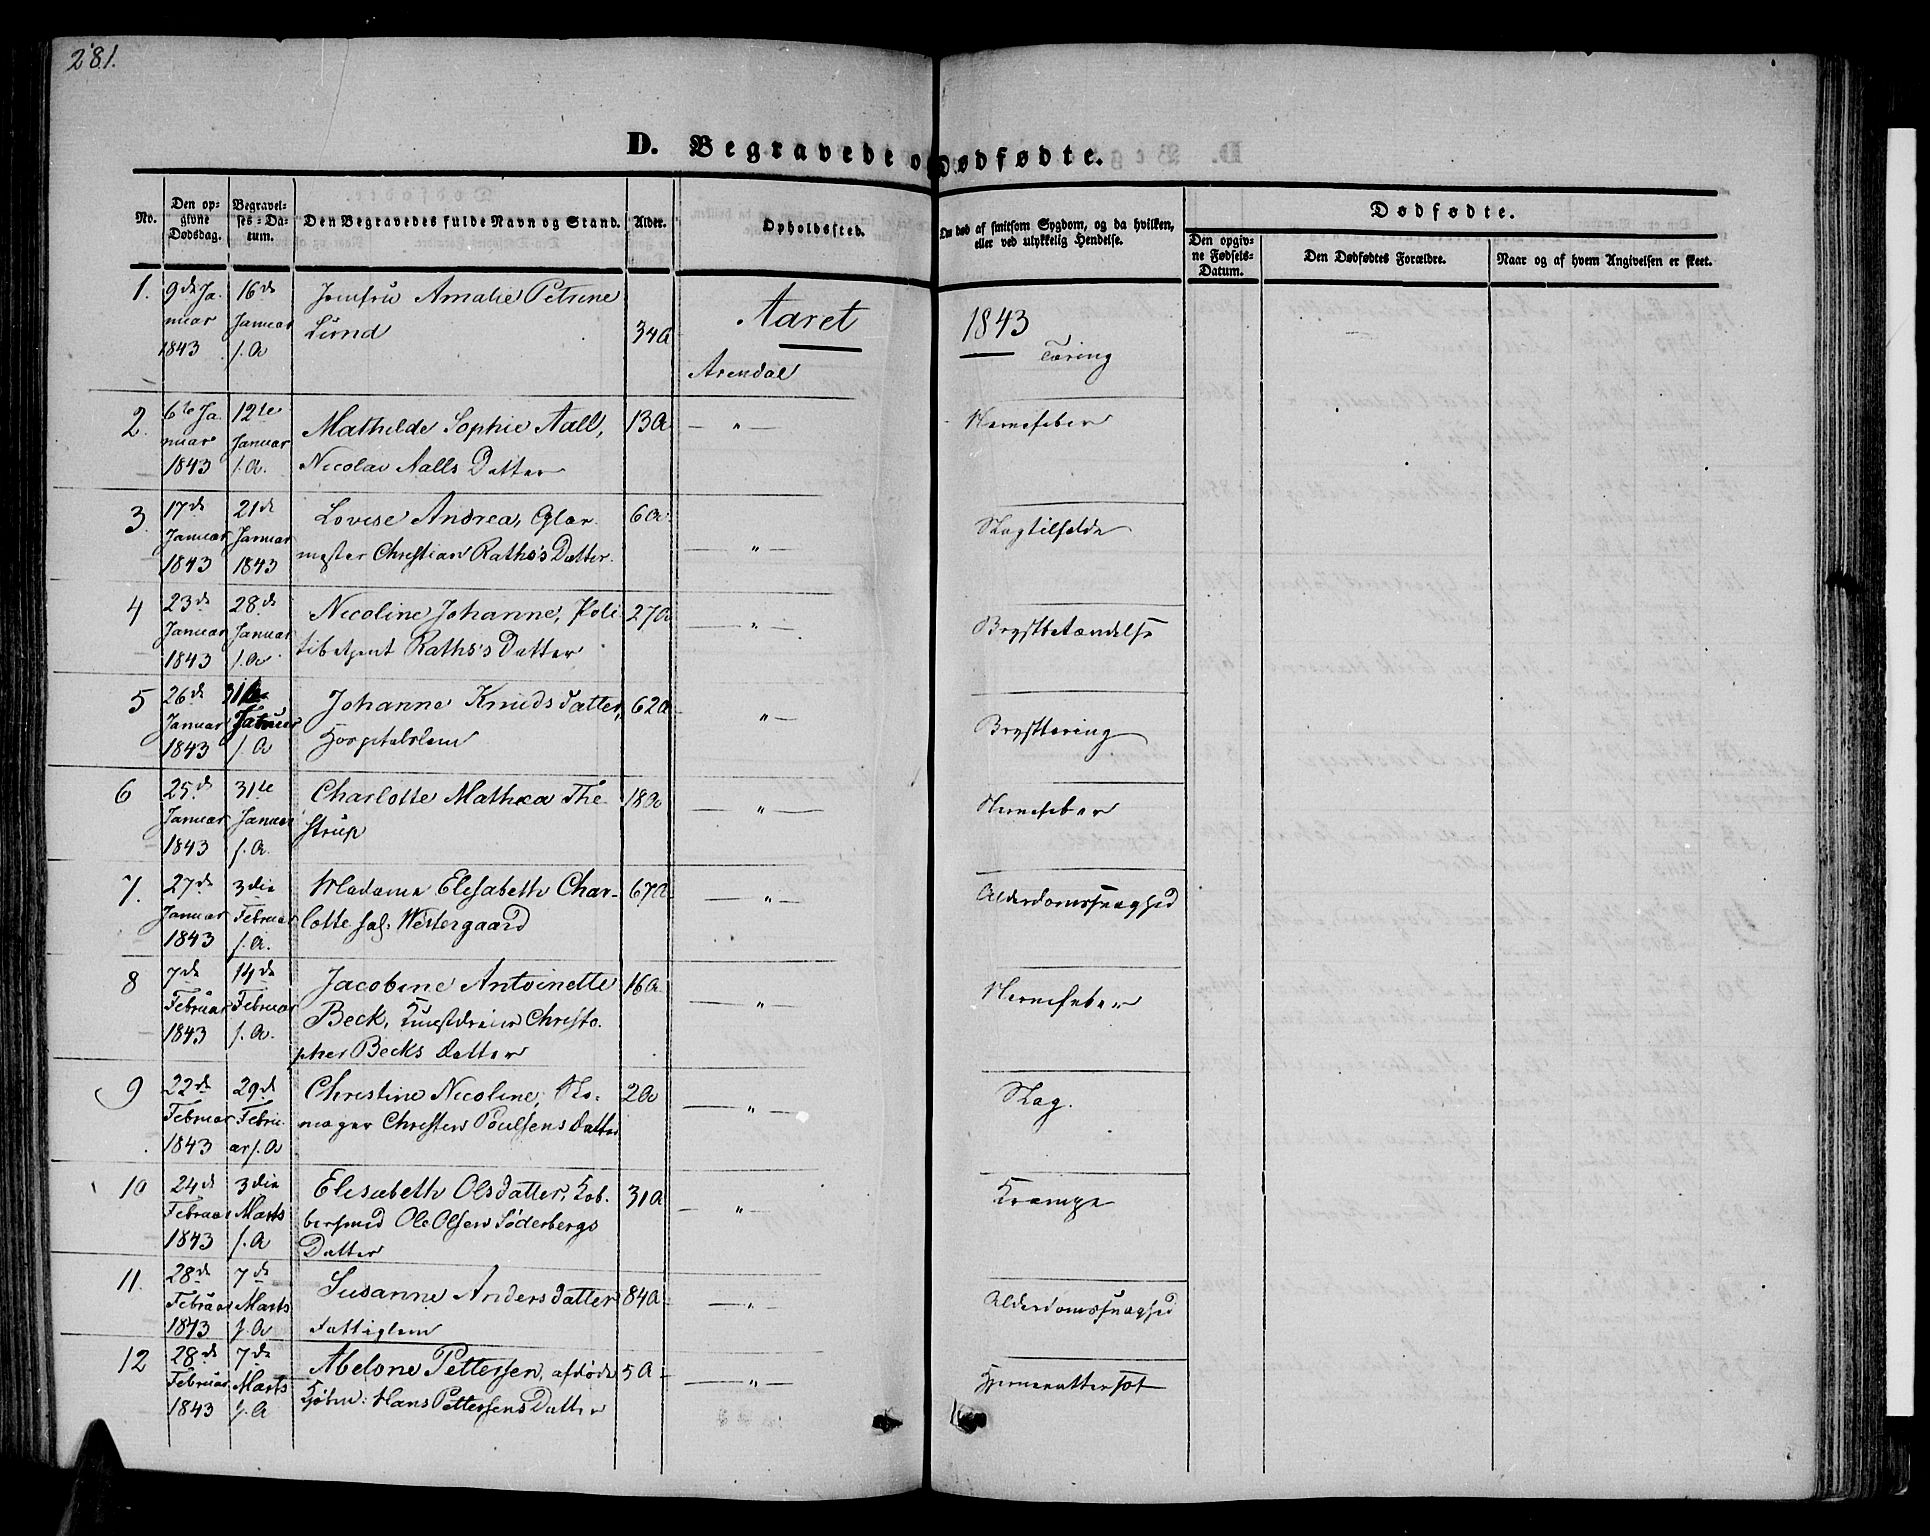 281.
D. Begravede o
Dødfødte.
No.
Den op-
givne
Dødsdag.
Begravel-
ses-Da-
tum.
Den Begravedes fulde Navn og Stand.
Alder.
Opholdssted.
Om død af smitsom Sygdom, og da hvilken,
eller ved ulykkelig Hendelse.
Dødfødte.
Den opgiv-
ne Fødsels-
Datum.
Den Dødfødtes Forældre.
Naar og af hvem Angivelsen er skeet.
Aaret 1843
1. 9de Ja- 16de Jomfru Amalie Petrine
nuar Januar Lund 34a
1843 s. A Arendal Tæring
2. 6te Ja 12te Mathilde Sophie Aall, 13a — " — Nervefeber
nuar Januar
1843 s. A. Nicolai Aalls Datter
3. 17de 21de Lovise Andrea, Glar- 6a
Januar Januar mester Christian Raths's Datter. — " — Slagtilfælde
1843 1843
4 23de 28de Nicoline Johanne, Poli- 27a — " — Brystbetændelse
Januar Januar tibetjent Raths's Datter
1843 s. A
5 26de 31te Johanne Knuds Datter, 62a — " — Brysttæring
Januar Januar Hospitalslem
1843 s. A
6 25de 31te Charlotte Mathea The- 18a — " — Nervefeber
Januar Januar strup
1843 s. A.
7. 27de 3die Madame Elisabeth Char- 67a — " — Alderdomssvaghed
Januar Februar lotte sal. Westergaard
1843 s. A.
8 7de 14de Jacobine Antoinette 16a — " — Nervefeber
Februar Februar Beck, Kunstdreier Christo-
1843 s. A. pher Becks Datter
9 22de 29de Christine Nicoline, Sko- 2a — " — Slag.
Februar Febru- mager Christen Poulsens Datter
1843 ar s. A
10 24de 3die Elisabeth Olsdatter, Kob- 31a — " — Krampe
Februar Marts bersmed Ole Olsen Söderbergs
1843 s. A Datter
11. 28de 7de Susanne Andersdatter 84a — " — Alderdomssvaghed
Februar Marts Fattiglem
1843 s. A
12 28de 7de Abelone Pettersen, afdøde 5a — " — Hjernevattersot
Februar Marts Kjøbm: Hans Pettersens Datter
1843 s. A